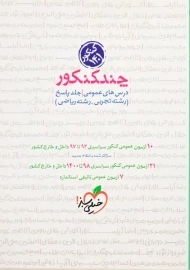 کنکور ۱۴۰۱
چندکنکور
درس‌های عمومی | جلد پاسخ
(رشته تجربی، رشته ریاضی)
۱۰ آزمون عمومی کنکور سراسری ۹۳ تا ۹۷ داخل و خارج کشور
۲۱ آزمون عمومی کنکور سراسری ۹۸ تا ۱۴۰۰ داخل و خارج کشور
۷ آزمون عمومی تألیفی استاندارد
خیلی سبز